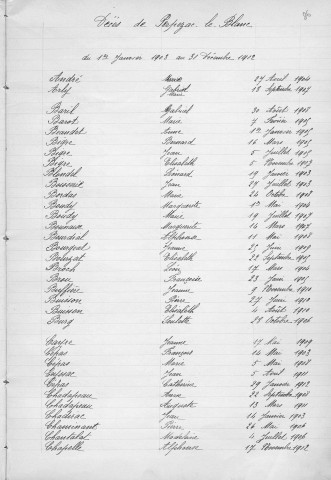 Décès de Perpezac le Blanc
du 1er Janvier 1903 au 31 Décembre 1912
André Marie 27 Avril 1904
Arly Gabriel 13 Septembre 1907
Baril Gabriel 30 Août 1907
Barot Marie 7 Février 1905
Beaudet Anne 1er Janvier 1905
Beyne Bernard 16 Mars 1905
Beyne Jean 5 Juillet 1905
Beyne Elisabeth 5 Novembre 1903
Blondel Léonard 19 Janvier 1903
Boissat Jean 29 Juillet 1903
Bordas Marie 24 Octobre 1908
Boudy Marguerite 1er Mai 1904
Boudy Marie 19 Juillet 1907
Marguerite 14 Mars 1905
11 Mai 1907
Jeanne 25 Juin 1909
Elisabeth 22 Septembre 1905
Broch Léon 17 Mars 1904
Broc Françoise 23 Juin 1905
Jeanne 9 Novembre 1910
Buisson Pierre 27 Juin 1910
Buisson Elisabeth 4 Août 1910
Bourg Paulette 28 Octobre 1906
Jeanne 17 Mai 1909
Cepas François 14 Mai 1903
Cepas Marie 5 Mai 1908
Jean 2 Avril 1911
Cepas Catherine 29 Janvier 1912
Chadapeau Anne 22 Septembre 1908
Chadapeau Auguste 13 Mars 1911
Jean 14 Janvier 1903
Pierre 24 Mai 1906
Chantalat Madeleine 4 Juillet 1906
Chapelle Alphonse 17 Novembre 1912